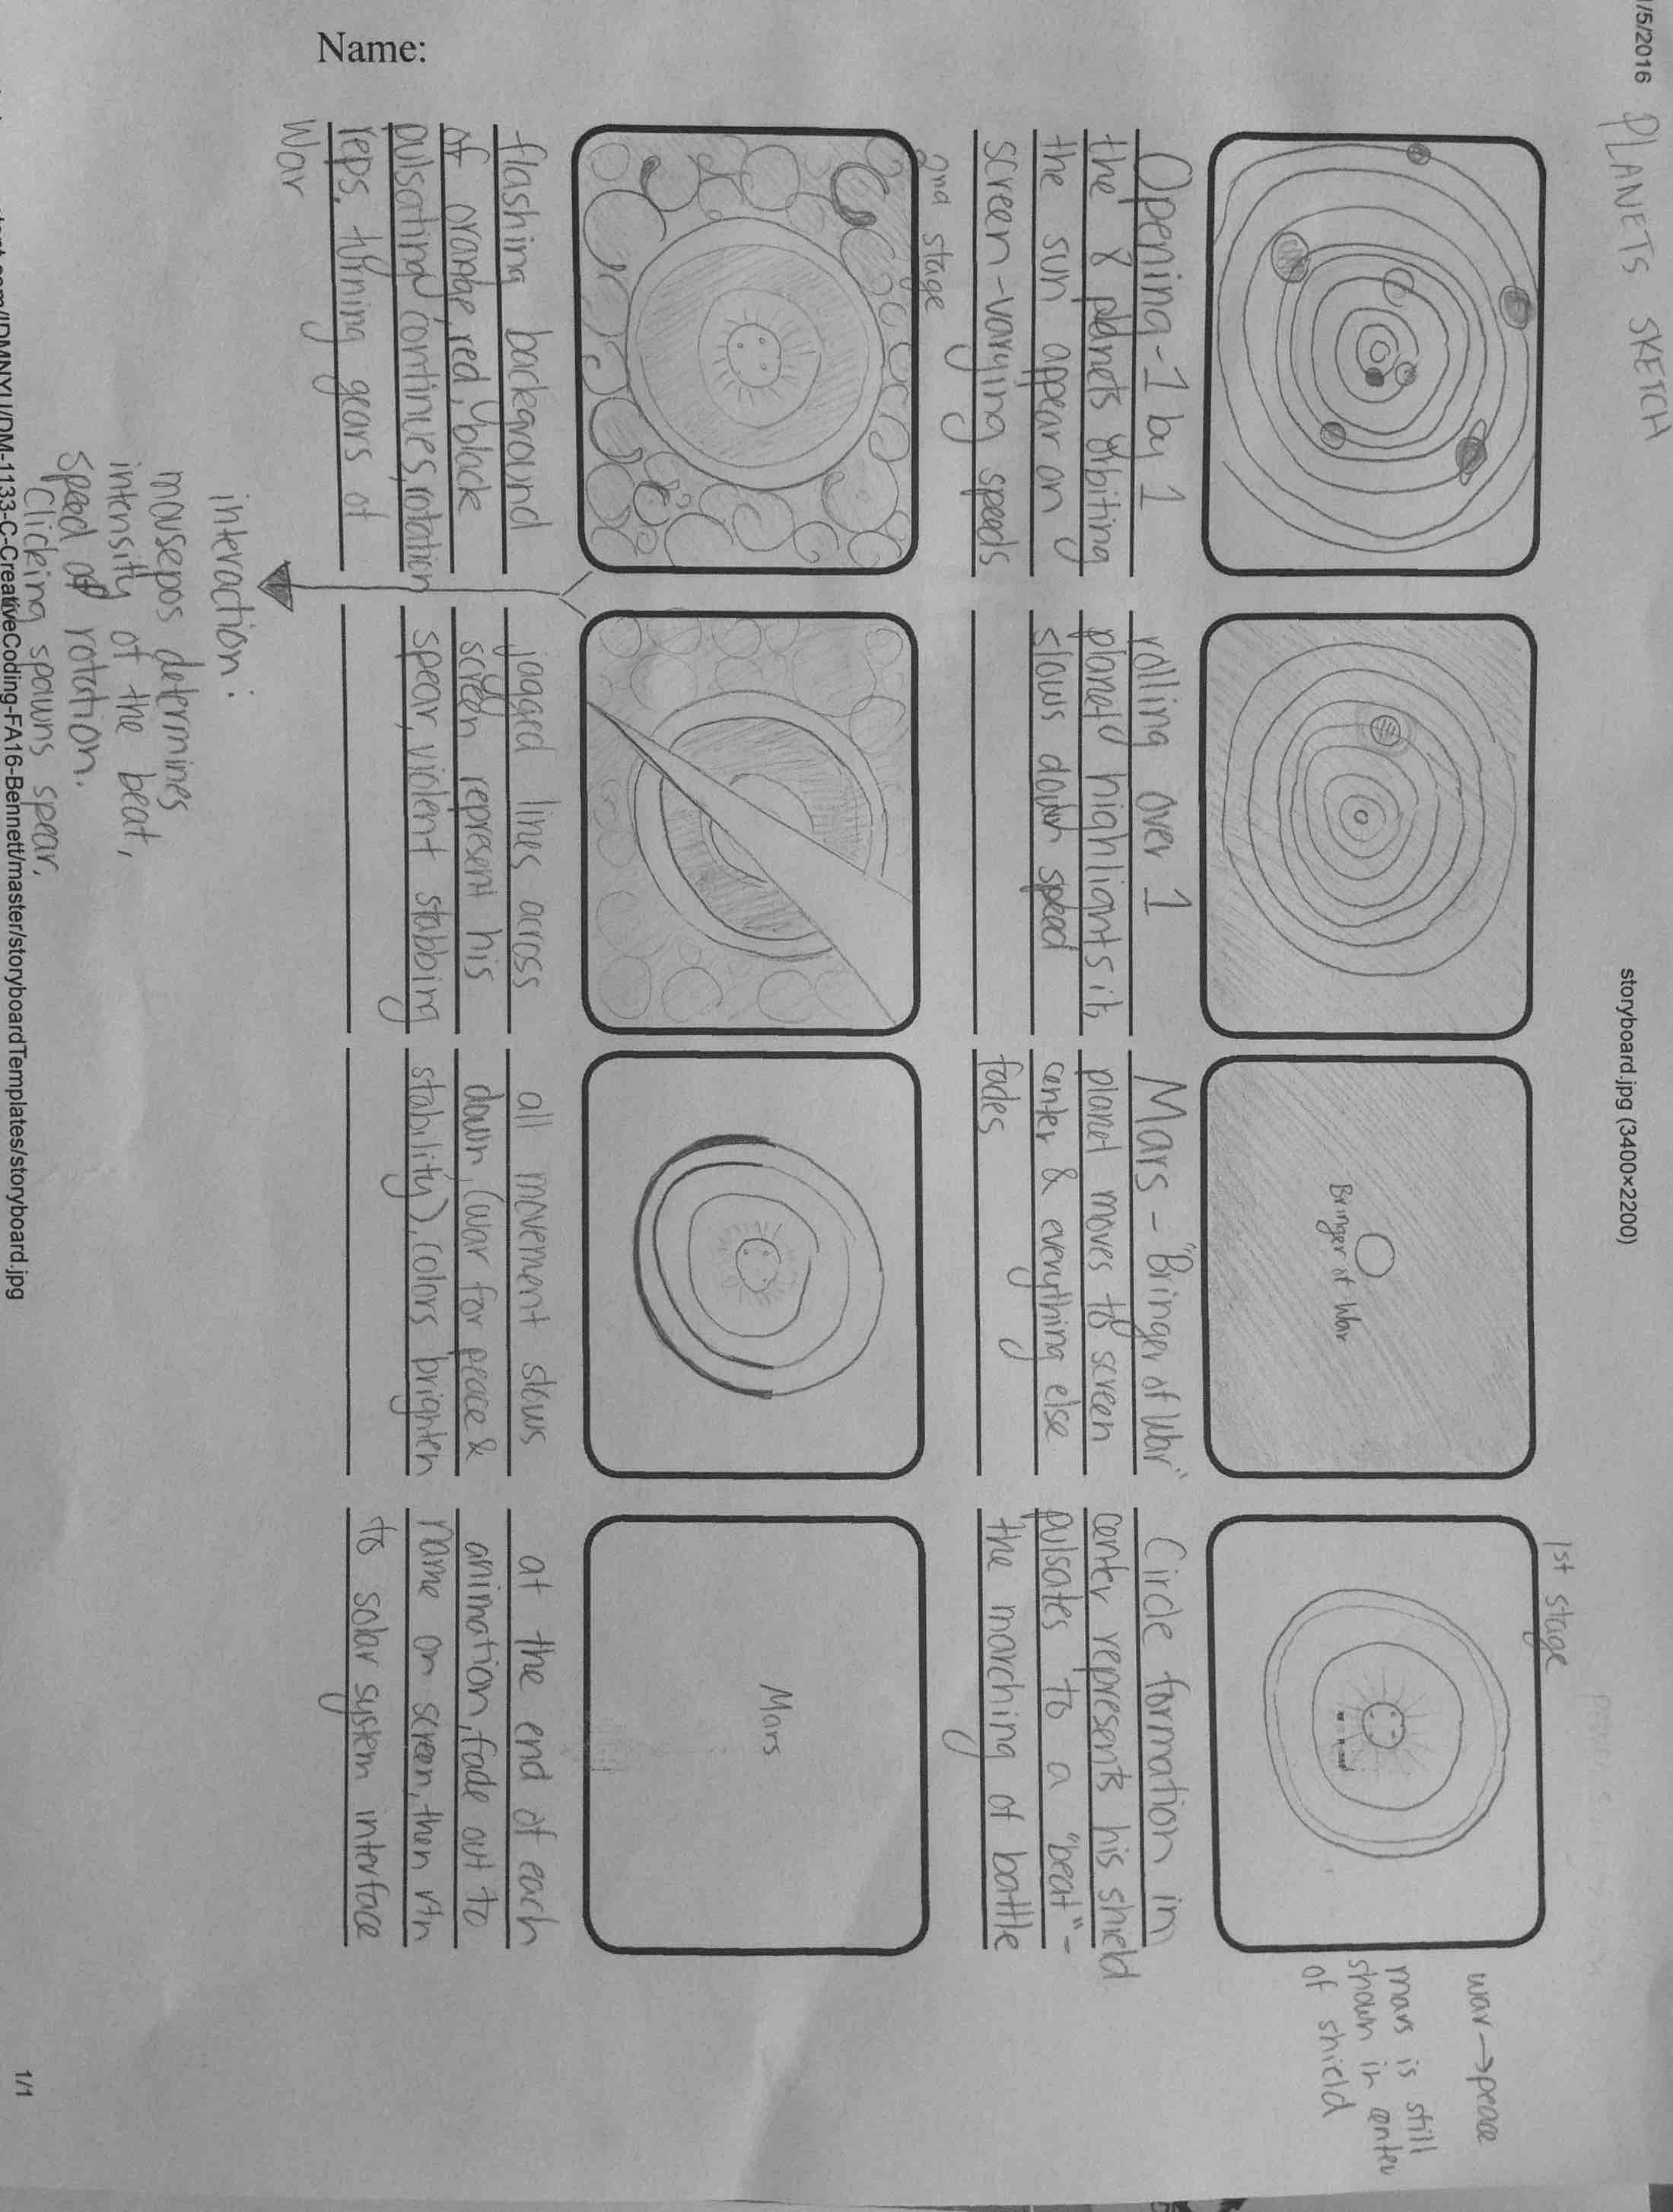 /5/2016
storyboard.jpg (3400×2200)
PLANETS SKETCH
1st stage
war → peace
mars is still
shown in center
of shield
Bringer of War
Opening - 1 by 1
the 8 planets orbiting
the sun appear on
screen - varying speeds
rolling over 1
planet highlights it,
slows down speed
Mars - "Bringer of War"
planet moves to screen
center & everything else
fades
Circle formation in
center represents his shield
pulsates to a "beat" -
the marching of battle
2nd stage
Mars
flashing background
of orange, red, black
pulsating continues, rotation
reps. turning gears of
War
jagged lines across
screen represent his
spear, violent stabbing
all movement slows
down, (war for peace &
stability), colors brighten
at the end of each
animation, fade out to
name on screen, then rtn
to solar system interface
interaction:
mousepos determines
intensity of the beat,
speed of rotation.
Clicking spawns spear.
Name:
/IDMNYU/DM-1133-C-CreativeCoding-FA16-Bennett/master/storyboardTemplates/storyboard.jpg
1/1